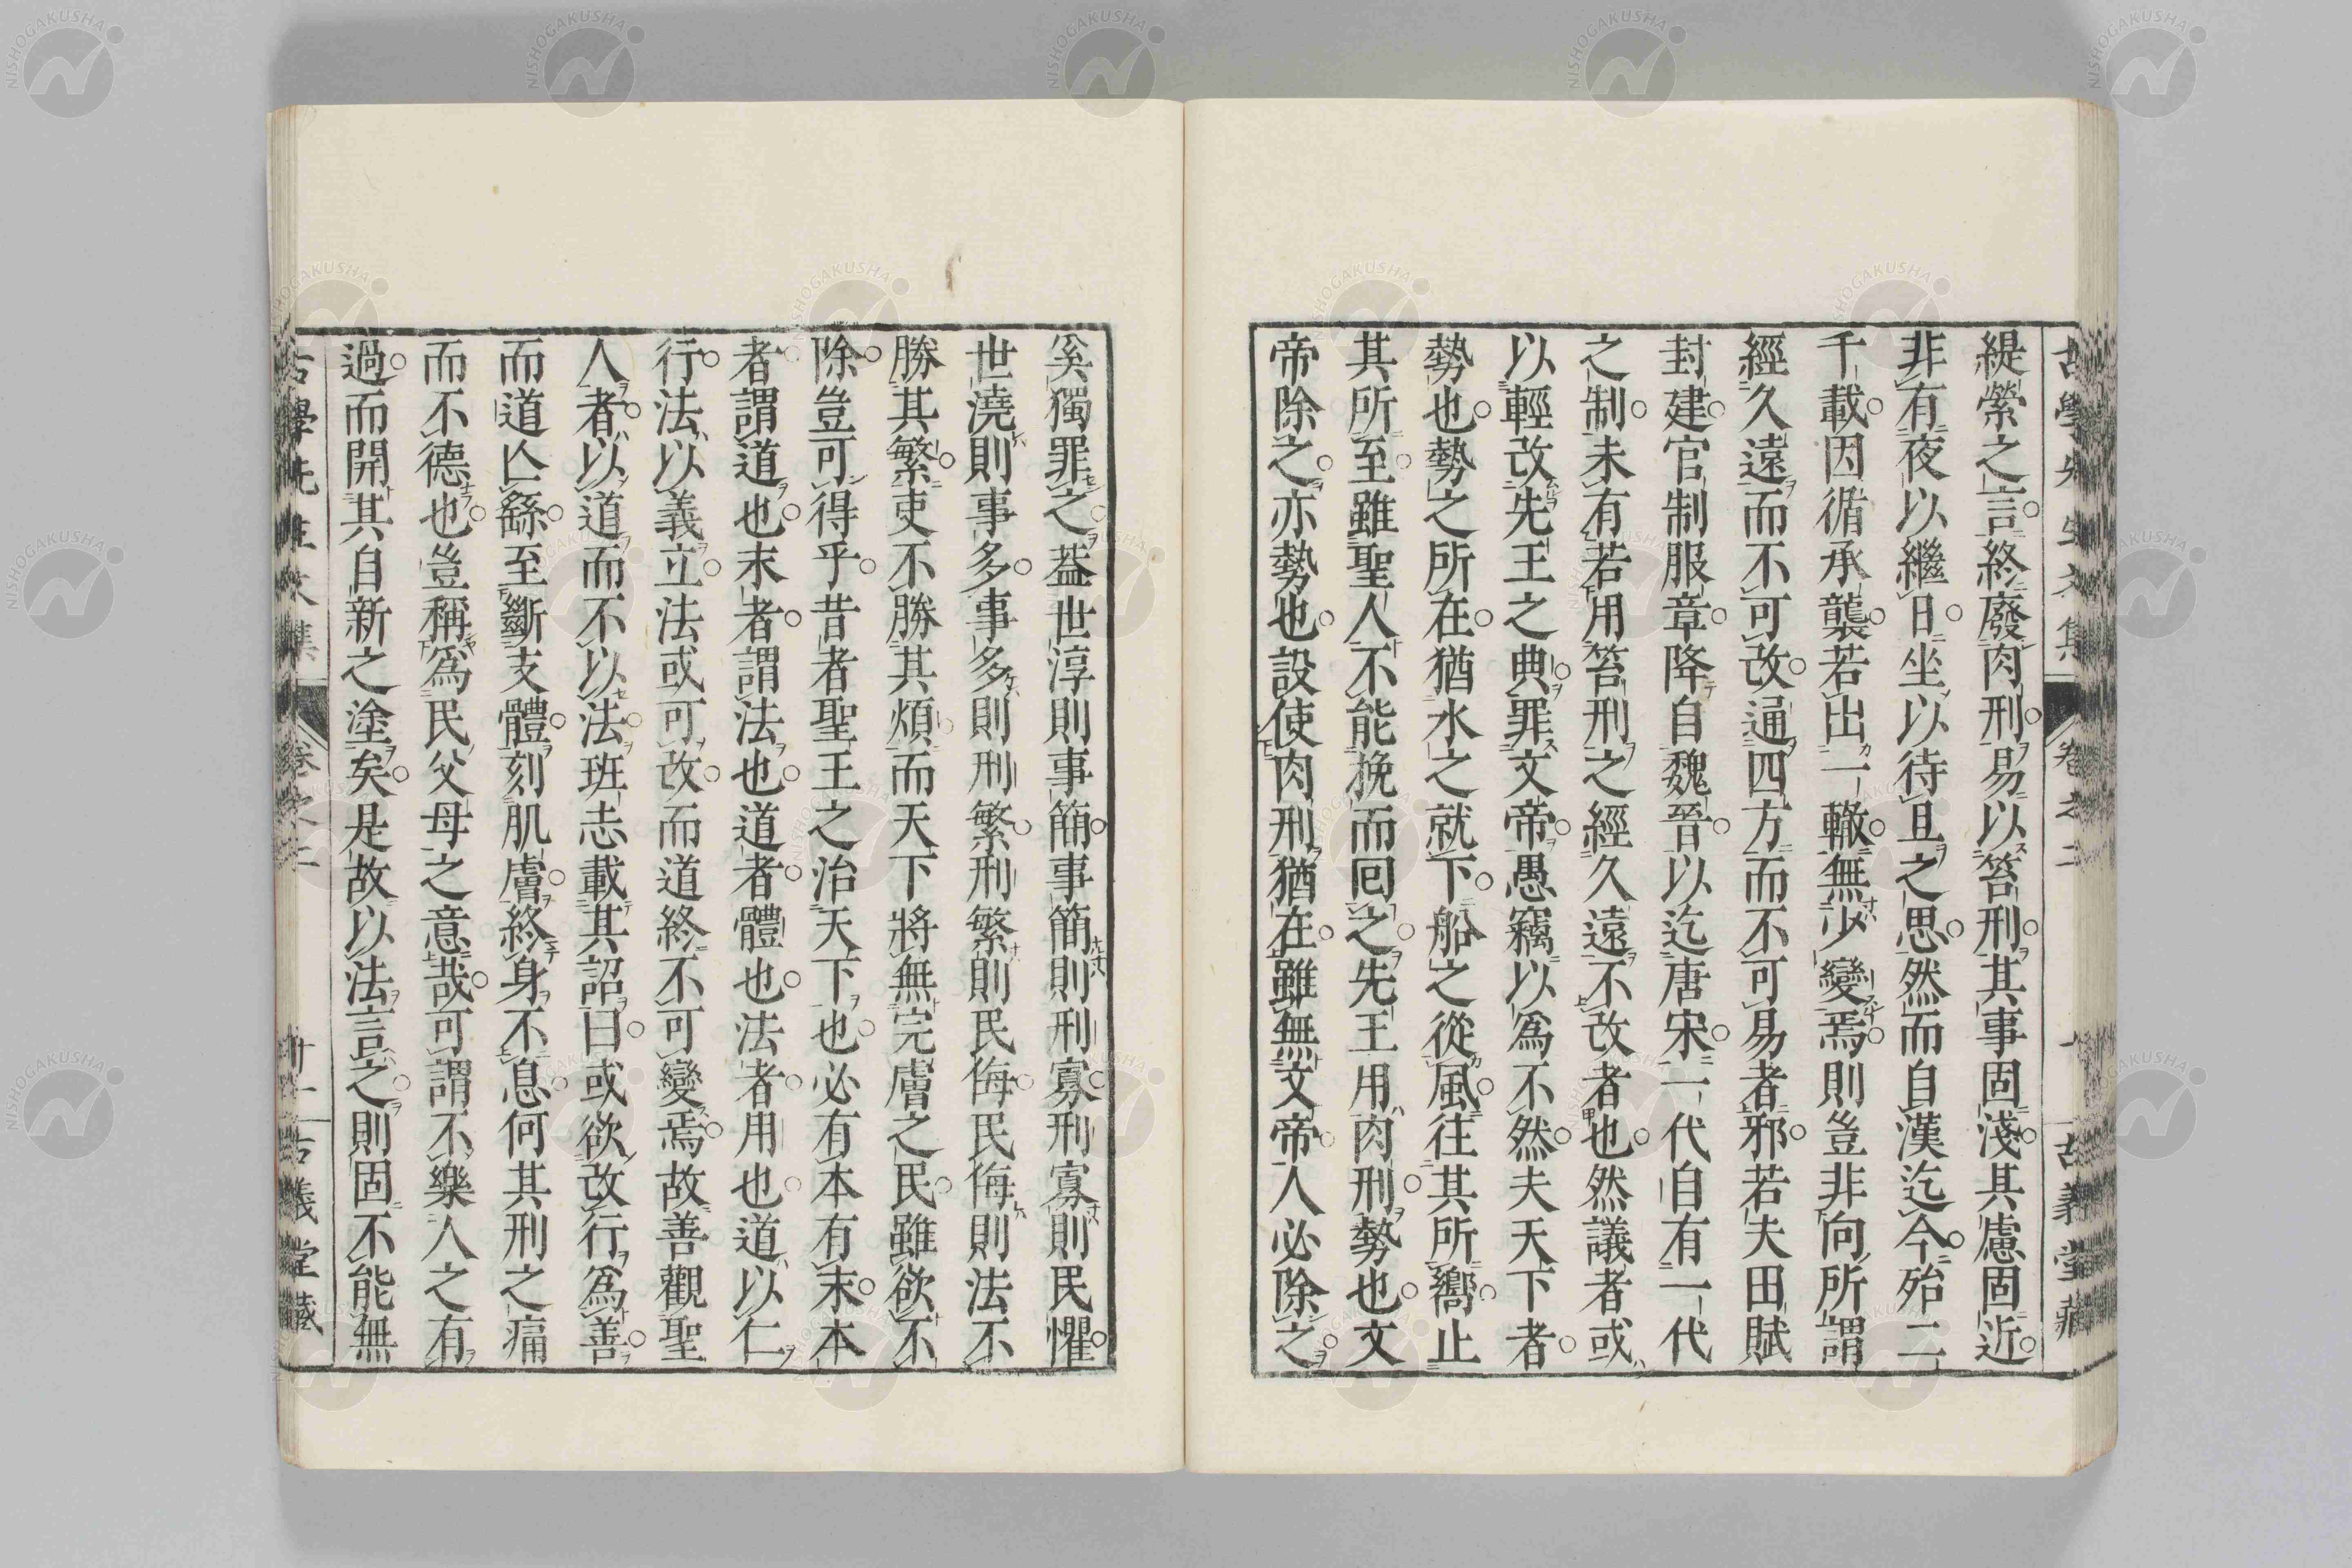 緹縈之言終廢肉刑易以笞刑其事固淺其慮固近
非有夜以繼日坐以待旦之思然而自漢迄今殆二
千載因循承襲若出一轍無少變焉則豈非向所謂
經久遠而不可改通四方而不可易者邪若夫田賦
封建官制服章降自魏晉以迄唐宋一代自有一代
之制未有若用笞刑之經久遠不改者也然議者或
以輕改先王之典罪文帝愚竊以爲不然夫天下者
勢也勢之所在猶水之就下船之從風往其所嚮止
其所至雖聖人不能挽而回之先王用肉刑勢也文
帝除之亦勢也設使肉刑猶在雖無文帝人必除之
奚獨罪之葢世淳則事簡事簡則刑寡刑寡則民懼
世澆則事多事多則刑繁刑繁則民侮民侮則法不
勝其繁吏不勝其煩而天下將無完膚之民雖欲不
除豈可得乎昔者聖王之治天下也必有本有末本
者謂道也末者謂法也道者體也法者用也道以仁
行法以義立法或可改而道終不可變焉故善觀聖
人者以道而不以法班志載其詔曰或欲改行爲善
而道亾繇至斷支體刻肌膚終身不息何其刑之痛
而不德也豈稱爲民父母之意哉可謂不樂人之有
過而開其自新之塗矣是故以法言之則固不能無
古學先生文集 卷之二 十一 古義堂藏